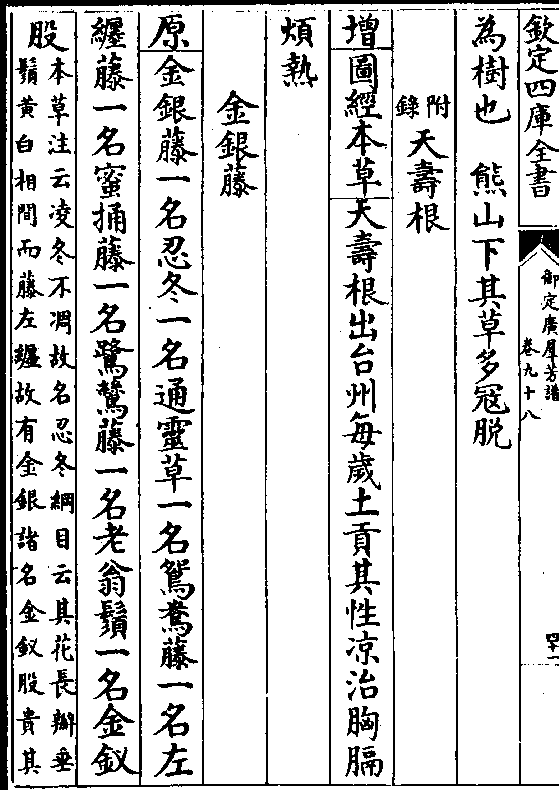 欽定四庫全書
御定廣羣芳譜
卷九十八
為樹也　熊山下其草多冦脱
附錄　天壽根
增圖經本草天壽根出台州每歲土貢其性凉治胸膈
煩熱
金銀藤
原金銀藤一名忍冬一名通靈草一名鴛鴦藤一名左
纒藤一名蜜桶藤一名鷺鷥藤一名老翁鬚一名金釵
股
本草注云凌冬不凋故名忍冬綱目云其花長瓣垂
鬚黄白相間而藤左纒故有金銀諸名金釵股貴其